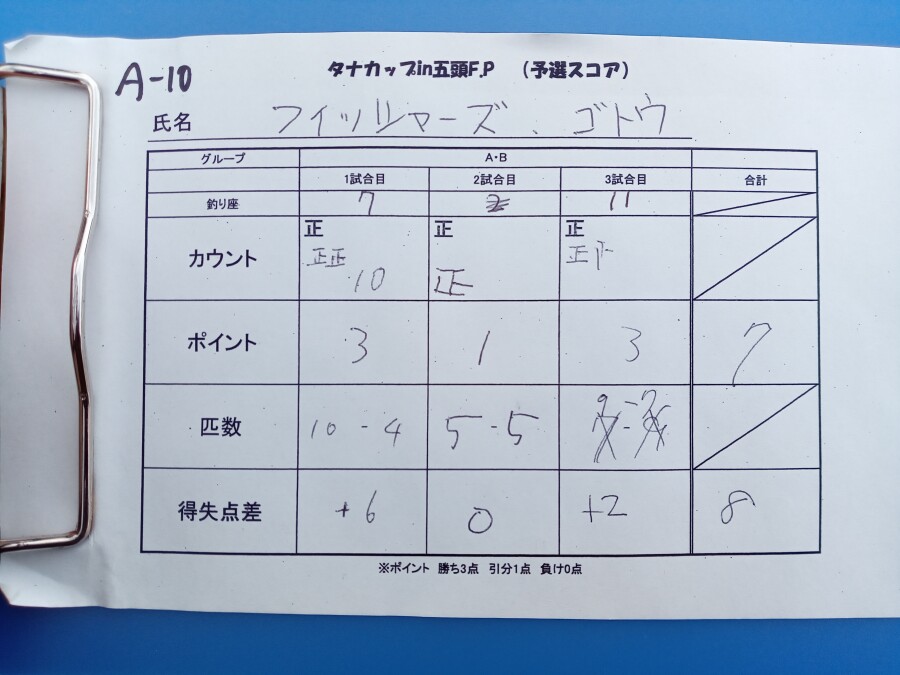 A-10
タナカップin五頭F.P （予選スコア）
氏名 フィッシャーズ、ゴトウ
グループ A・B
1試合目 2試合目 3試合目 合計
釣り座 7 2 11
カウント 正 正正 10 正 正 正 正
ポイント 3 1 3 7
匹数 10-4 5-5 9-7
得失点差 +6 0 +2 8
※ポイント 勝ち3点 引分1点 負け0点